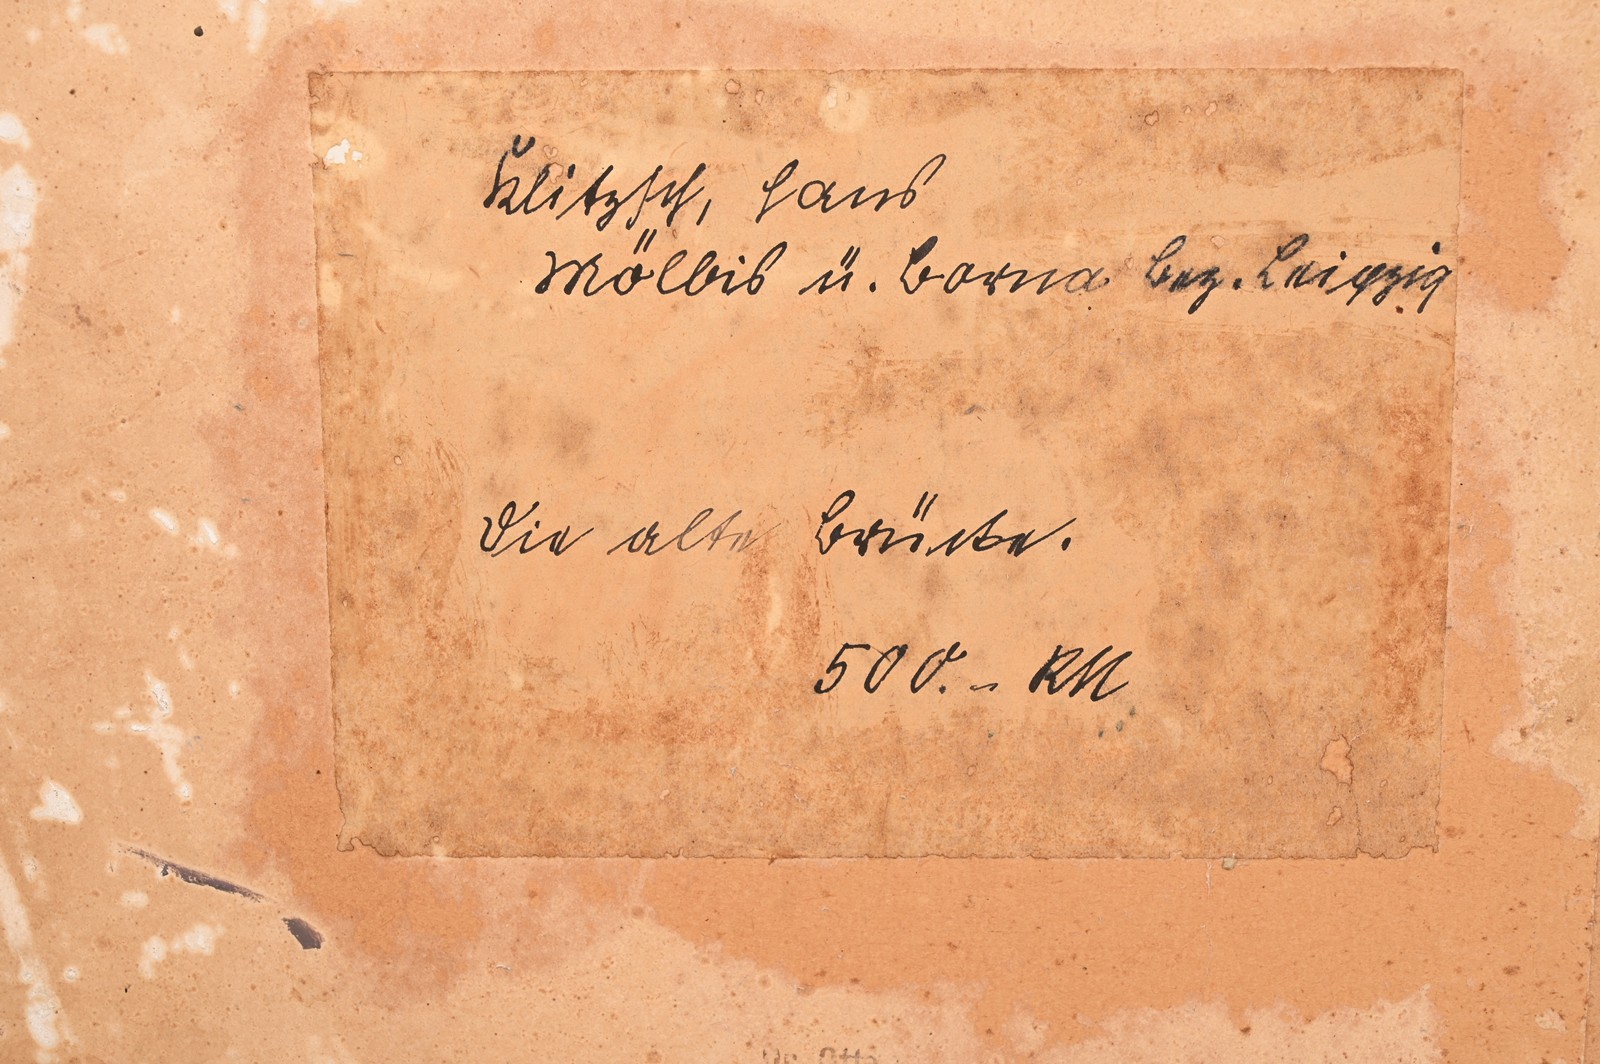 Klitzsch, Hans
Mölbis ü. Borna Bez. Leipzig
Die alte Brücke.
500.- RM